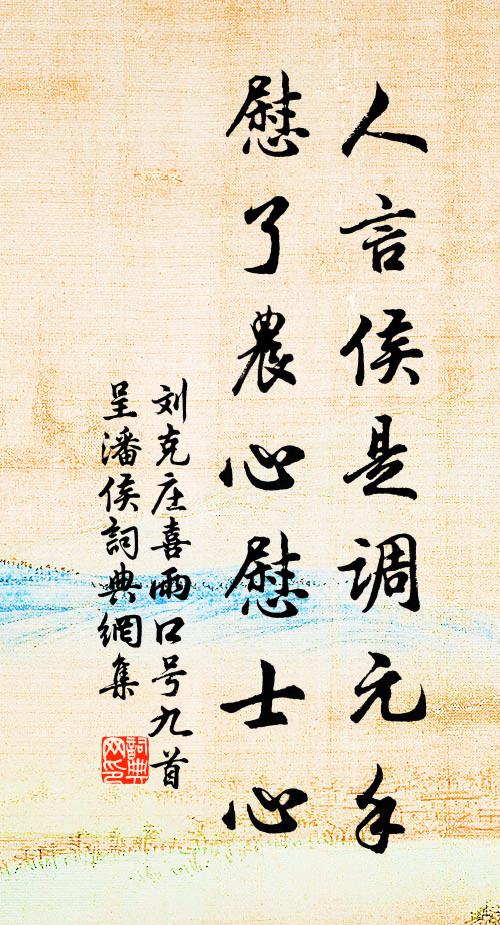 人言侯是调元手
慰了農心慰士心
刘克庄喜雨口号九首
呈潘侯詞典網集
詞典
网印